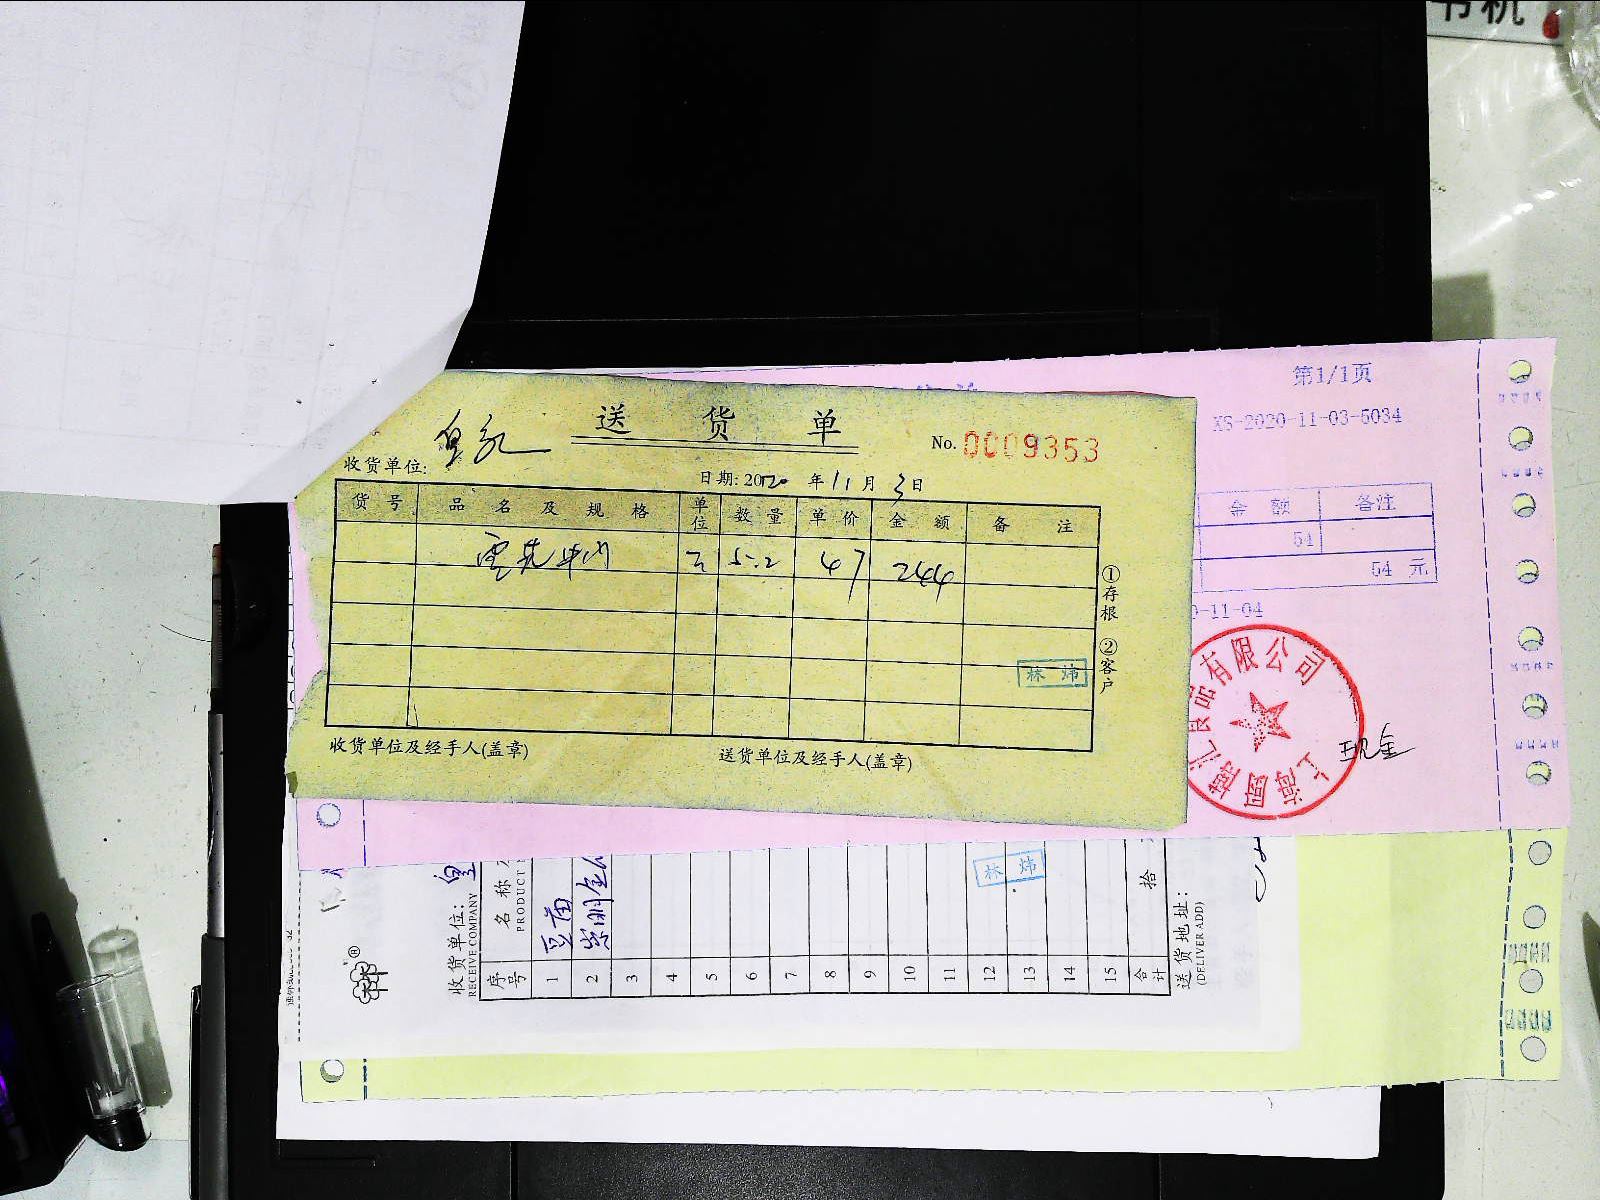 书机
第1/1页
XS-2020-11-03-5034
送货单
No. 0009353
收货单位:
日期: 2020年11月3日
货号 品名及规格 单位 数量 单价 金额 备注
5.2 47 244
①存根
②客户
林炜
收货单位及经手人(盖章)
送货单位及经手人(盖章)
金额 备注
54
54 元
0-11-04
有限公司
上海
现金
收货单位: 皇
RECEIVE COMPANY
序号 名称
PRODUCT
1 豆苗
2 崇明金
3
4
5
6
7
8
9
10
11
12
13
14
15
合计 拾
林炜
送货地址:
(DELIVER ADD)